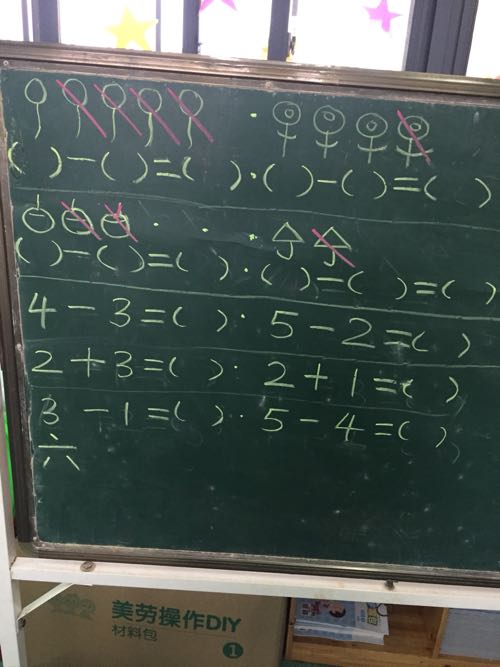 ( ) - ( ) = ( ) · ( ) - ( ) = ( )
( ) - ( ) = ( ) · ( ) - ( ) = ( )
4 - 3 = ( ) · 5 - 2 = ( )
2 + 3 = ( ) · 2 + 1 = ( )
3 - 1 = ( ) · 5 - 4 = ( )
六
美劳操作DIY
材料包 1